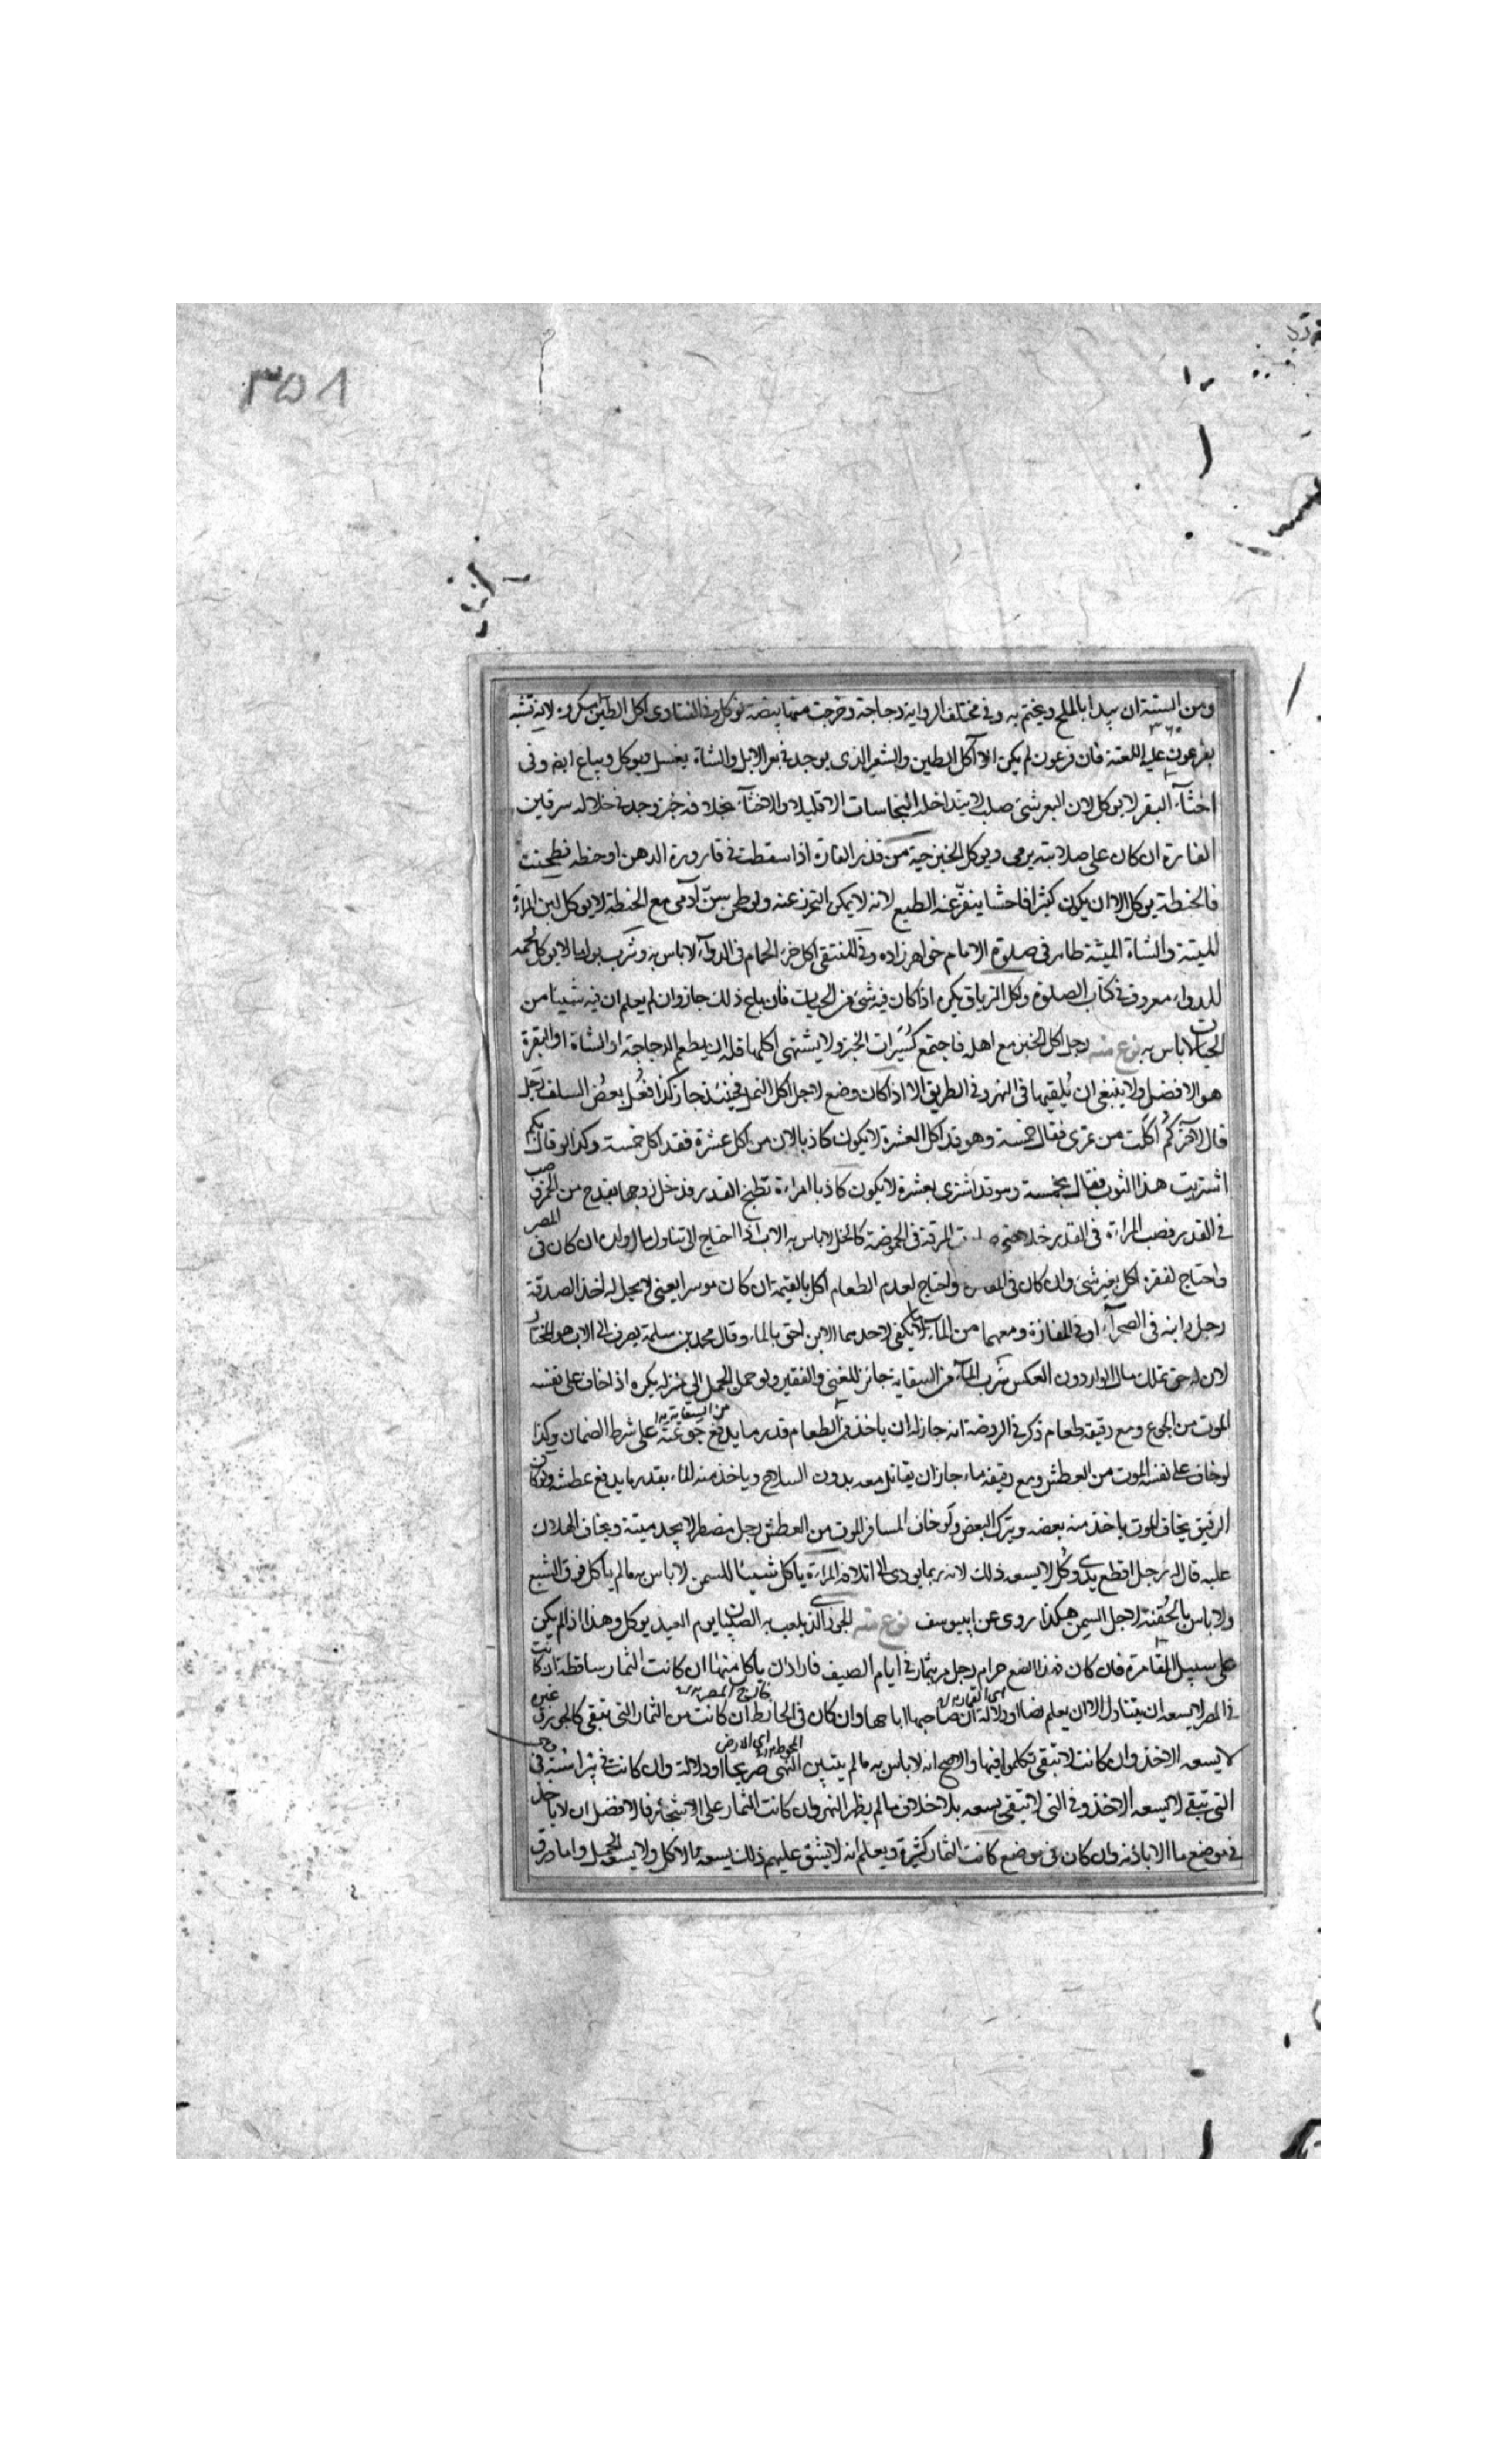 ٣٥٨
ومن السنة ان يبدا بالملح ويختم به وفى مختلف الرواية دجاجة وخرجت منها بيضة توكل وفى الفتاوى اكل الطين مكروه لانه تشبه
بفرعون عليه اللعنة فان فرعون لم يكن الا آكل الطين والشعير الذى يوجد فى بعر الابل والشاة يغسل ويوكل ويباع ايضا وفى
اخثاء البقر لا يوكل لان البعر شئ صلب لا يتداخله النجاسات الا قليلا والاخثاء بخلافه خبز وجد فى خلاله سرقين
الفارة ان كان على صلابته يرمى ويوكل الخبز حية من قذر الفارة اذا سقطت فى قارورة الدهن او حنطه فطحنت
فالحنطة يوكل الا ان يكون كثيرا فاحشا ينفر عنه الطبع لانه لا يمكن التحرز عنه ولو طحن سن آدمى مع الحنطة لا يوكل لبن المراة
الميتة والشاة الميتة طاهر فى صلوة الامام خواهر زاده وفى المنتقى اكل خرء الحمام فى الدواء لا باس به وشرب بول ما لا يوكل لحمه
للدواء معروف فى كتاب الصلوة واكل الترياق يكره اذا كان فيه شئ من الحيات فان باع ذلك جاز وان لم يعلم ان فيه شيئا من
الحيات لا باس به نوع منه رجل اكل الخبز مع اهله فاجتمع كسيرات الخبز ولا يشتهى اكلها فله ان يطعم الدجاجة او الشاة او البقرة
هو الافضل ولا ينبغى ان يلقيها فى النهر وفى الطريق الا اذا كان وضع لاجل اكل النمل فحينئذ جاز كذا فعل بعض السلف رجل
قال لاخر كم اكلت من تمرى فقال خمسة وهو قد اكل العشرة لا يكون كاذبا لان من اكل عشرة فقد اكل خمسة وكذا لو قال بكم
اشتريت هذا الثوب فقال بخمسة وهو قد اشترى بعشرة لا يكون كاذبا امراءة تطبخ القدر فدخل زوجها بقدح من الخمر فصب
فى القدر فصب المراءة فى القدر خلا حتى المرقة فى الحموضة كالخل لا باس به الاب اذا احتاج الى تناول مال ولده ان كان فى المصر
واحتاج لفقره اكل بغير شئ وان كان فى واحتاج لعدم الطعام اكل بالقيمة ان كان موسرا يعنى لا يحل له اخذ الصدقة
رجل وابنه فى الصحراء او فى المفازة ومعهما من الماء ما يكفى لاحدهما الابن احق بالماء وقال محمد بن سلمة يصرف الى الاب هو المختار
لان له حق تملك مال الولد دون العكس شرب الماء من السقاية جائز للغنى والفقير ولو حمل الحمل الى منزله يكره اذا خاف على نفسه
من السقاية
الموت من الجوع ومع رفيقه طعام ذكر فى الروضة انه جاز له ان ياخذ من الطعام قدر ما يدفع جوعته على شرط الضمان وكذا
لو خاف على نفسه الموت من العطش ومع رفيقه ماء جاز ان يقاتل معه بدون السلاح وياخذ منه الماء بقدر ما يدفع عطشه ولو كان
الرفيق يخاف الموت ياخذ منه بعضه ويترك البعض ولو خاف المسافر الموت من العطش رجل مضطر لا يجد ميتة ويخاف الهلاك
عليه قال له رجل اقطع يدى وكل لا يسعه ذلك لانه ربما يودى الى اتلافه المراءة ياكل شيئا للسمن لا باس به ما لم ياكل فوق الشبع
ولا باس بالحقنة لاجل السمن هكذا روى عن ابيوسف نوع منه الجوز الذى يلعب به الصبيان يوم العيد يوكل وهذا اذا لم يكن
على سبيل المقامرة فان كان فهذا الصنع حرام رجل مر بثمار فى ايام الصيف فاراد ان ياكل منها ان كانت الثمار ساقطة ان كانت
فى المصر لا يسعه ان يتناول الا ان يعلم نصا او دلالة ان صاحبها اباحها وان كان فى الحائط ان كانت من الثمار التى تبقى كالجوز وغيره
اى الارض
لا يسعه الاخذ وان كانت لا تبقى تكلموا فيها والاصح انه لا باس به ما لم يتبين النهى صريحا او دلالة وان كانت فى
التى تبقى لا يسعه الاخذ وفى التى لا تبقى يسعه بلا خلاف ما لم يظهر النهى وان كانت الثمار على الاشجار فالافضل ان لا ياخذ
فى موضع ما الا باذنه وان كان فى موضع كانت الثمار كثيرة ويعلم انه لا يشق عليهم ذلك يسعه الاكل ولا يسعه الحمل واما ورق